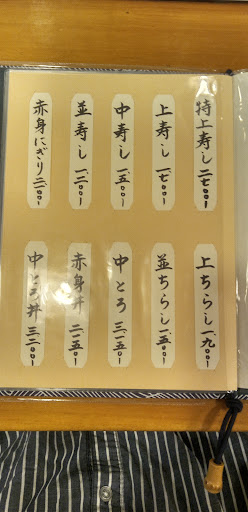 特上寿し 二、七〇〇-
上寿し 一、七〇〇-
中寿し 一、五〇〇-
並寿し 一、二〇〇-
赤身にぎり 二、一〇〇-
上ちらし 一、九〇〇-
並ちらし 一、五〇〇-
中とろ 三、一五〇-
赤身丼 二、一五〇-
中とろ丼 三、二〇〇-